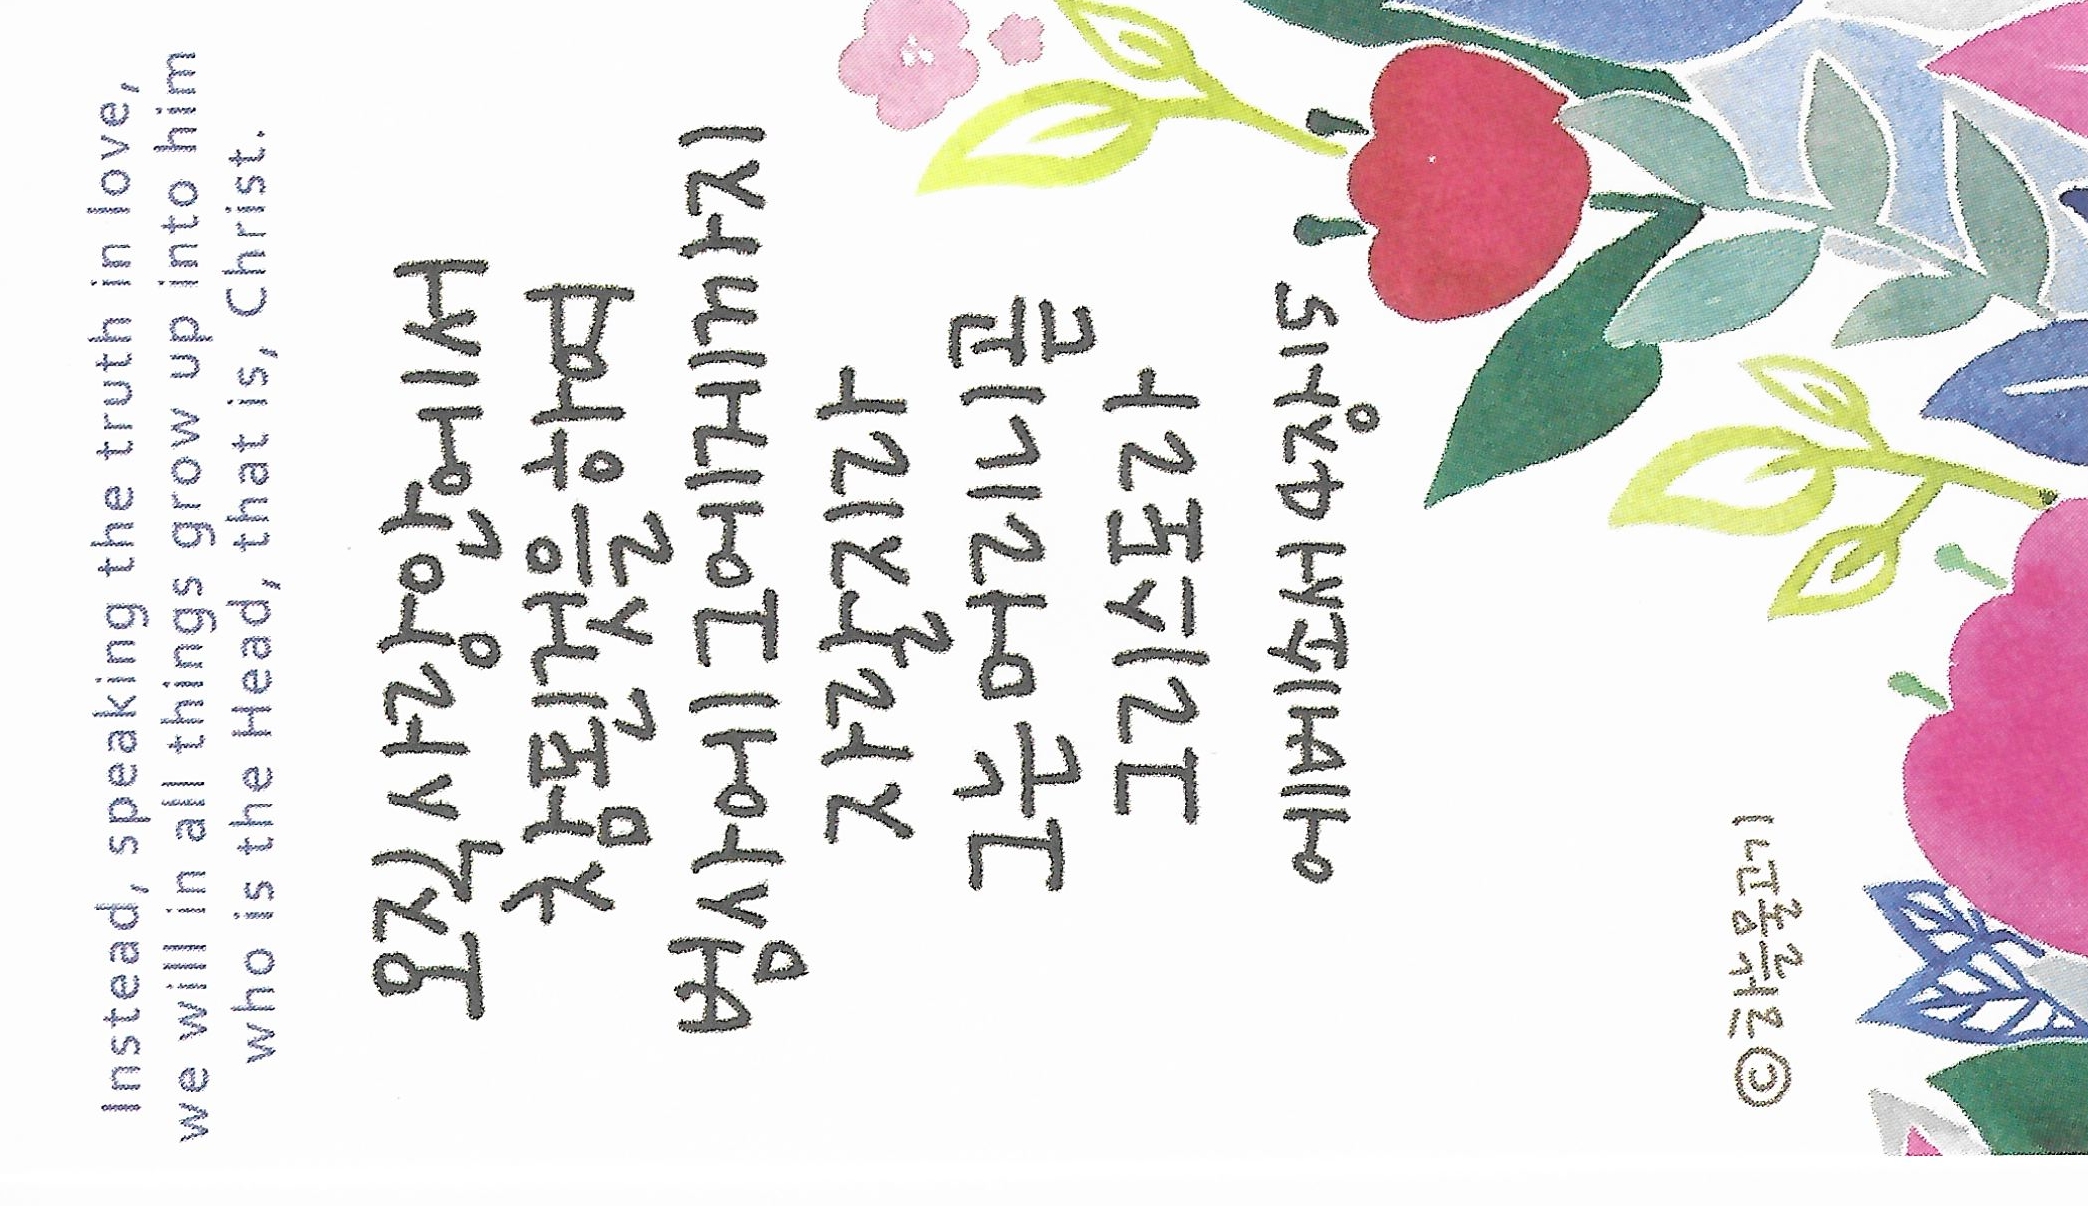 Instead, speaking the truth in love,
we will in all things grow up into him
who is the Head, that is, Christ.
오직 사랑 안에서
참된 것을 하여
범사에 그에게까지
자랄지라
그는 머리니 곧
그리스도라
에베소서 4장 15
© 하늘물고기